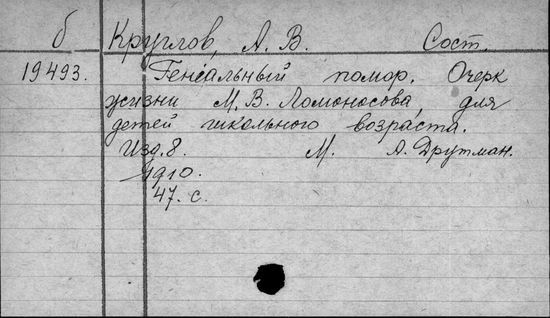 б Круглов, А. В. Сост.
19493. Генеальный помор. Очерк
жизни М. В. Ломоносова, для
детей школьного возраста.
Изд. 8. М. А. Друтман.
1910.
47. с.